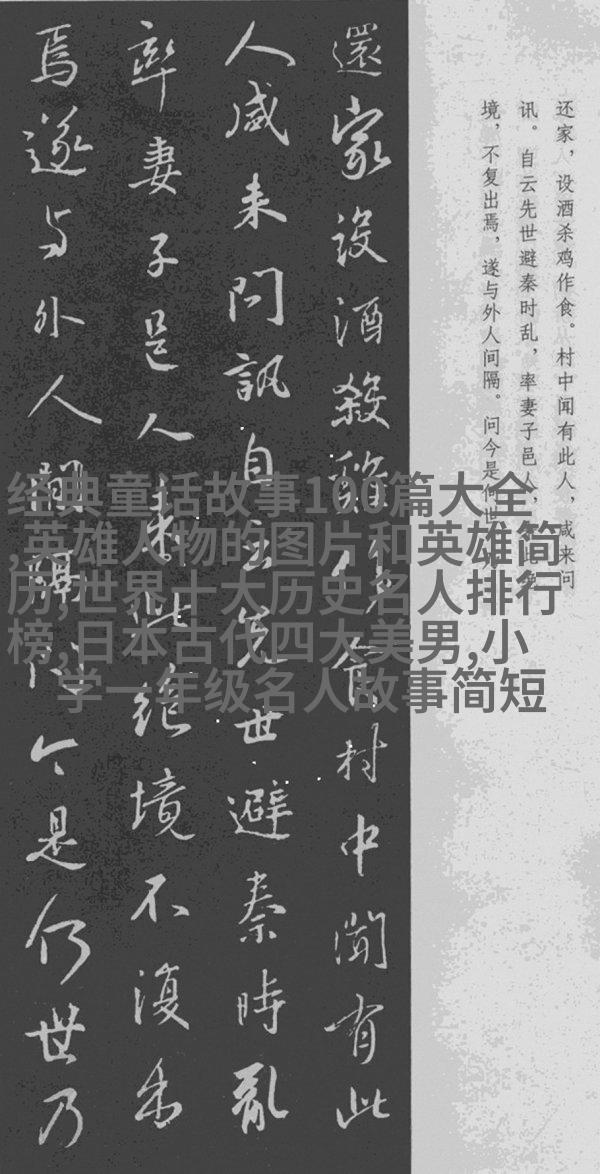 还家，设酒杀鸡作食。村中闻有此人，咸来问
讯。自云先世避秦时乱，率妻子邑人，来此绝
境，不复出焉，遂与外人间隔。问今是何世
還家設酒殺雞作食村中聞有此
人咸来問訊自云先世避秦時亂
率妻子邑人来此绝境不復出
焉遂与外人間隔問今是何世乃
经典童话故事100篇大全
,英雄人物的图片和英雄简
历,世界十大历史名人排行
榜,日本古代四大美男,小
学一年级名人故事简短